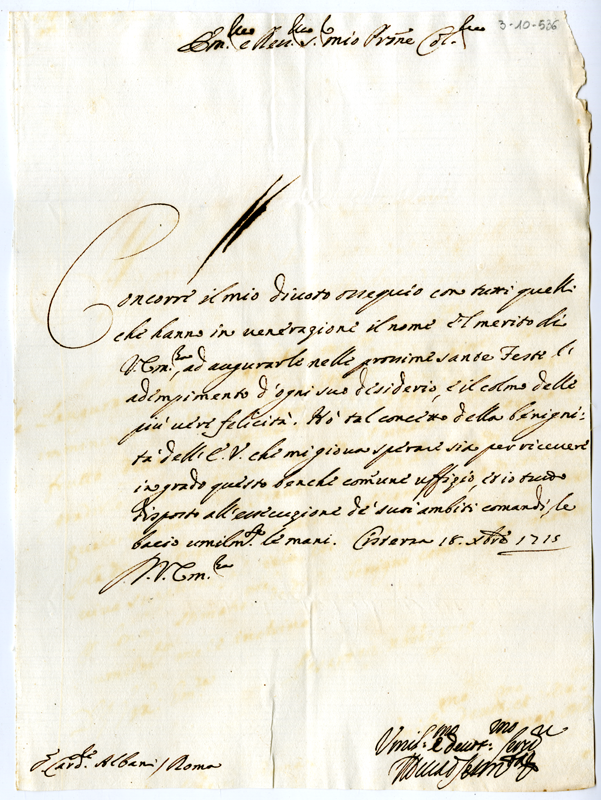 3-10-536
Em.mo e Rev.mo S.r mio P.rone Col.mo
Concorre il mio divoto ossequio con tutti quelli
che hanno in venerazione il nome e 'l merito di
V. Em.za, ad augurarle nelle prossime sante Feste l'
adempimento d'ogni suo desiderio, e il colmo delle
più vere felicità. Hò tal concetto della benigni=
tà dell'E. V. che mi giova sperare sia per ricevere
in grado questo benche comune uffizio, et io tutto
disposto all'essecuzione de' suoi ambiti comandi, le
bacio umilm.te le mani. Cisterna 18. Xbre 1715
V. Em.za
Card.le Albani / Roma
Umil.mo e devot.mo ser.re